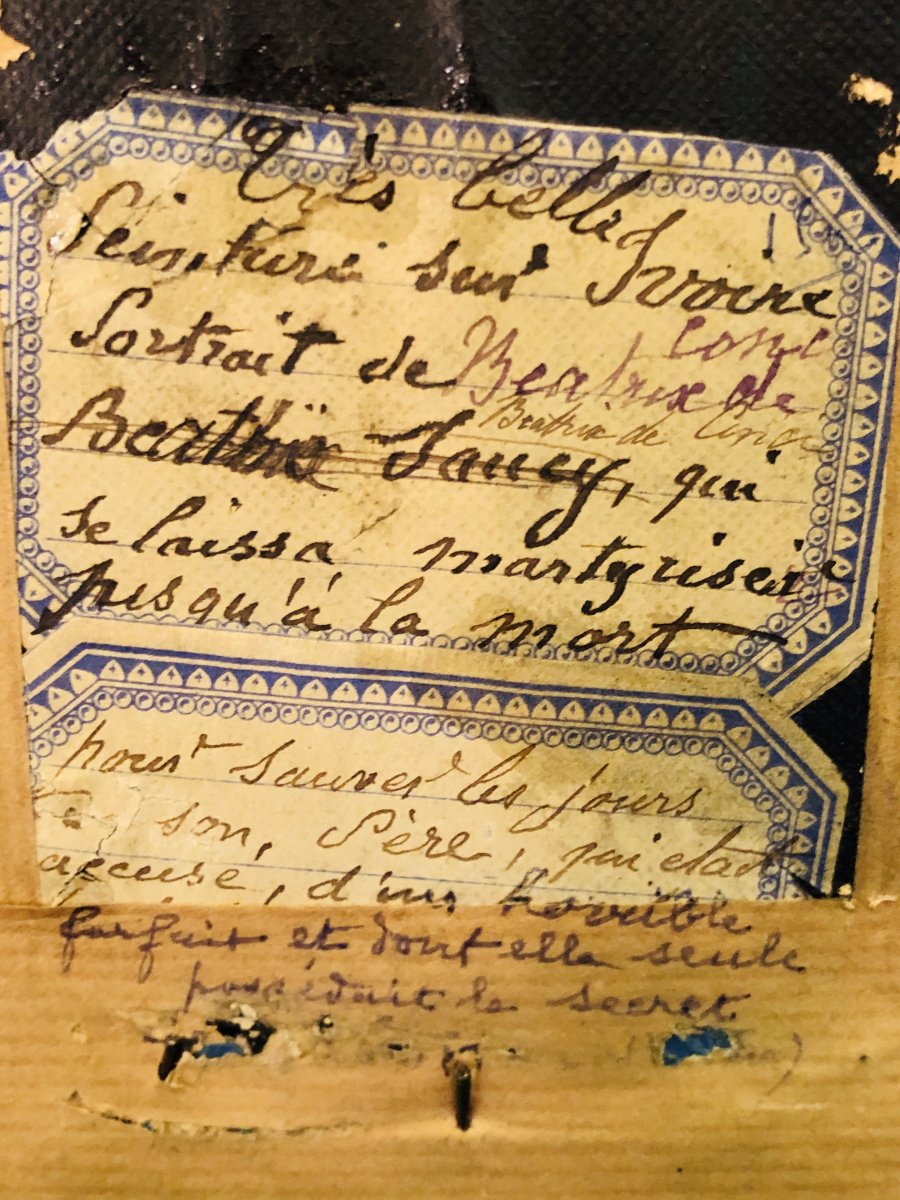 Très belle
Peinture sur Ivoire
Portrait de Beatrix de
Beatrix de
Saucy, qui
se laissa martyriser
jusqu'à la mort
pour sauver les jours
son, Père, qui etait
accusé, d'un horrible
forfait et dont elle seule
possédait le secret